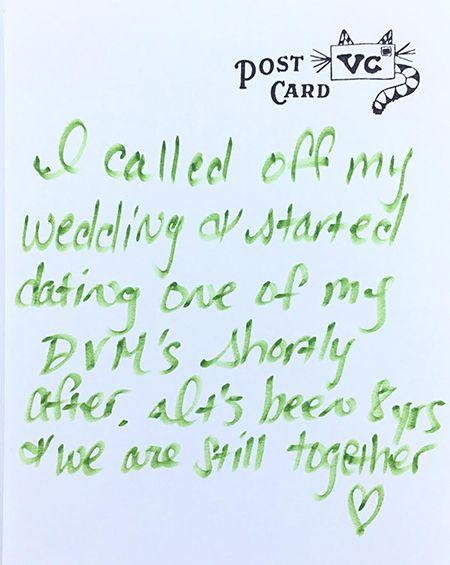 POST
CARD
VC
I called off my
wedding & started
dating one of my
DVM's shortly
after. It's been 8 yrs
& we are still together